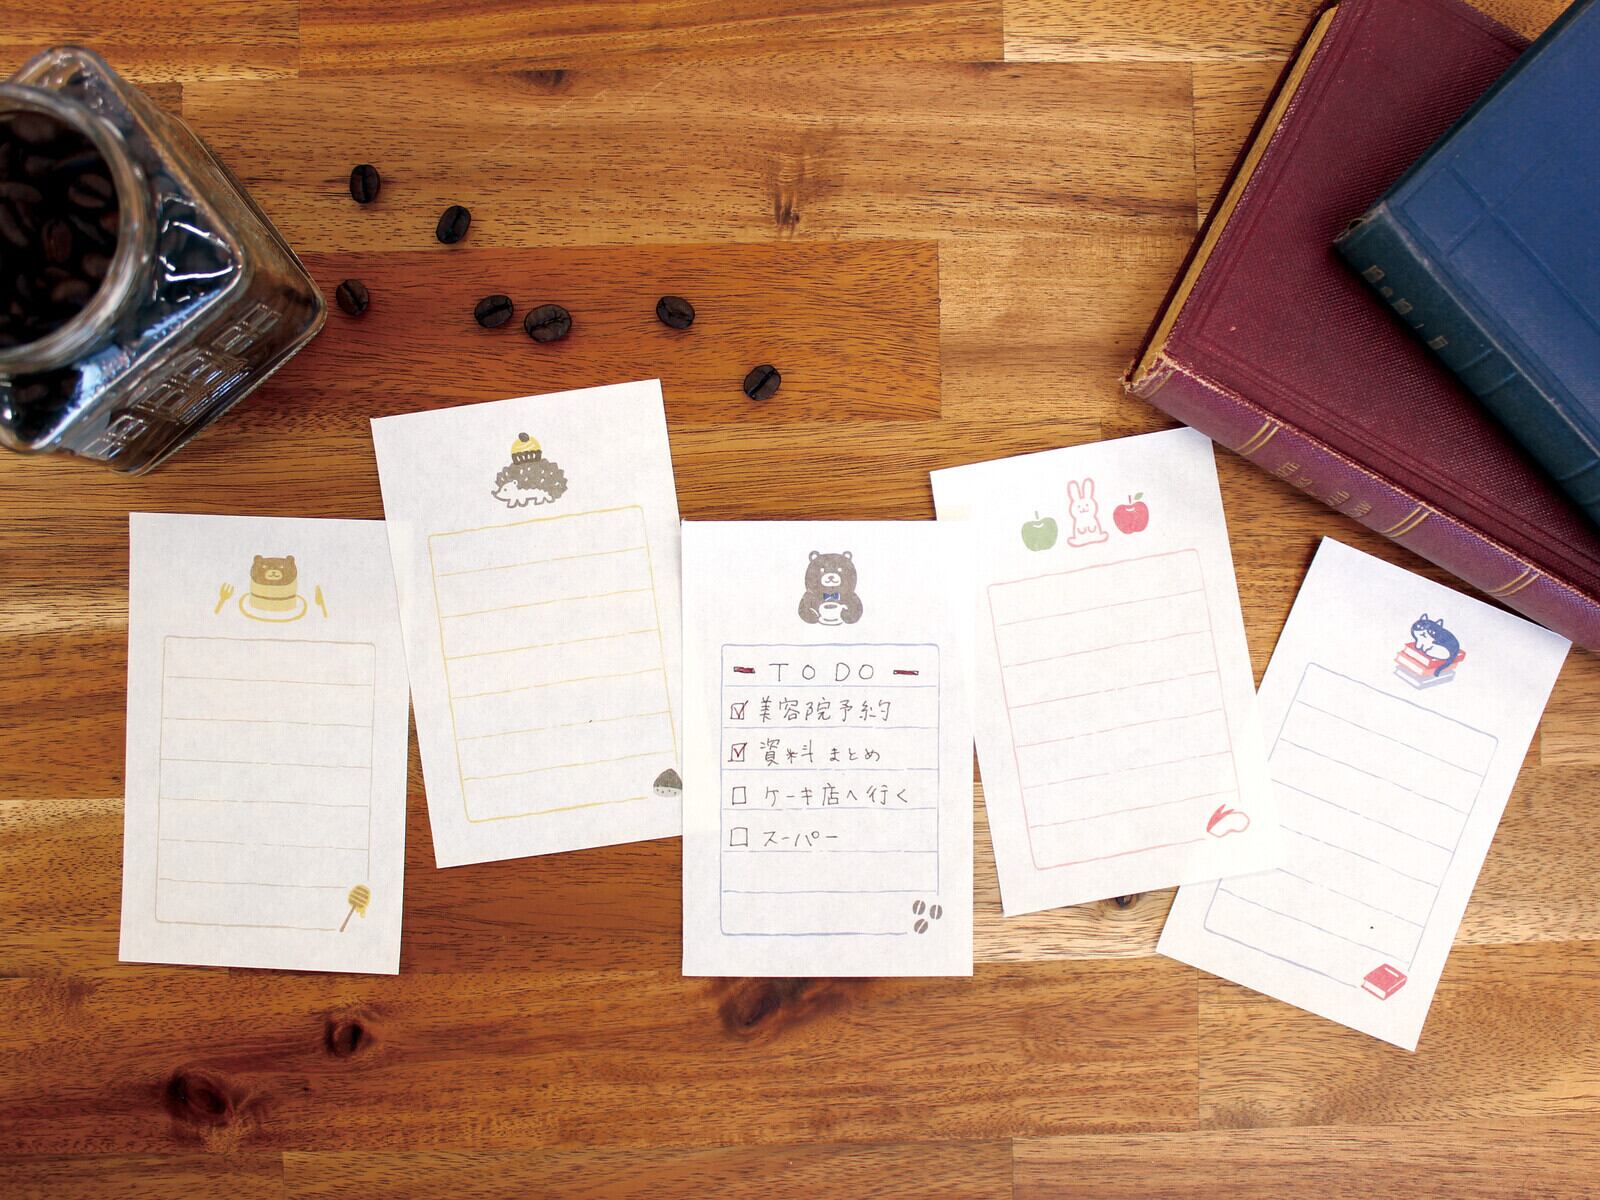 TO DO
☑ 美容院予約
☑ 資料まとめ
☐ ケーキ店へ行く
☐ スーパー